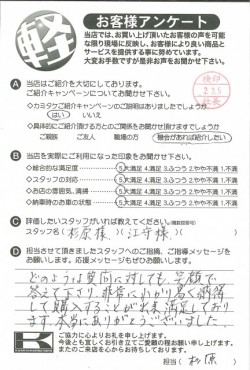 軽
お客様アンケート
当店では、お買い上げ頂いたお客様の声を可能
な限り現場に反映し、お客様により良い商品と
サービスを提供する事に努めています。
大変お手数ですが是非お声をお聞かせ下さい。
A 当店はご紹介を大切にしております。
ご紹介キャンペーンについてお聞かせ下さい。
◇カミタケご紹介キャンペーンのご説明はありましたでしょうか
はい いいえ
◇具体的にご紹介頂ける方とのご関係をお聞かせ頂けますでしょうか
ご親族 ご友人 職場の方 機会があれば紹介したい
B 当店を実際にご利用になった印象をお聞かせ下さい。
◇総合的な満足度 5.大満足 4.満足 3.ふつう 2.やや不満 1.不満
◇スタッフの対応 5.大満足 4.満足 3.ふつう 2.やや不満 1.不満
◇お店の雰囲気、清掃 5.大満足 4.満足 3.ふつう 2.やや不満 1.不満
◇納車時のお車の状態 5.大満足 4.満足 3.ふつう 2.やや不満 1.不満
C 評価したいスタッフがいれば教えてください。
スタッフ名( 杉原様 )( 江守様 )
D 担当させて頂きましたスタッフへのご指摘、ご指導メッセージを
お願いします。応援メッセージもぜひお願いします。
どのような質問に対しても、笑顔で
答えて下さり 非常にわかり易く納得
して購入する事が出来 満足しており
ます 本当にありがとうございました
K
ご協力に心よりお礼を申し上げます。
今後とも宜しくお引き立てご愛顧の程お願い申し上げます。
またのご来店を心からお待ちしております。
担当( 杉原 )